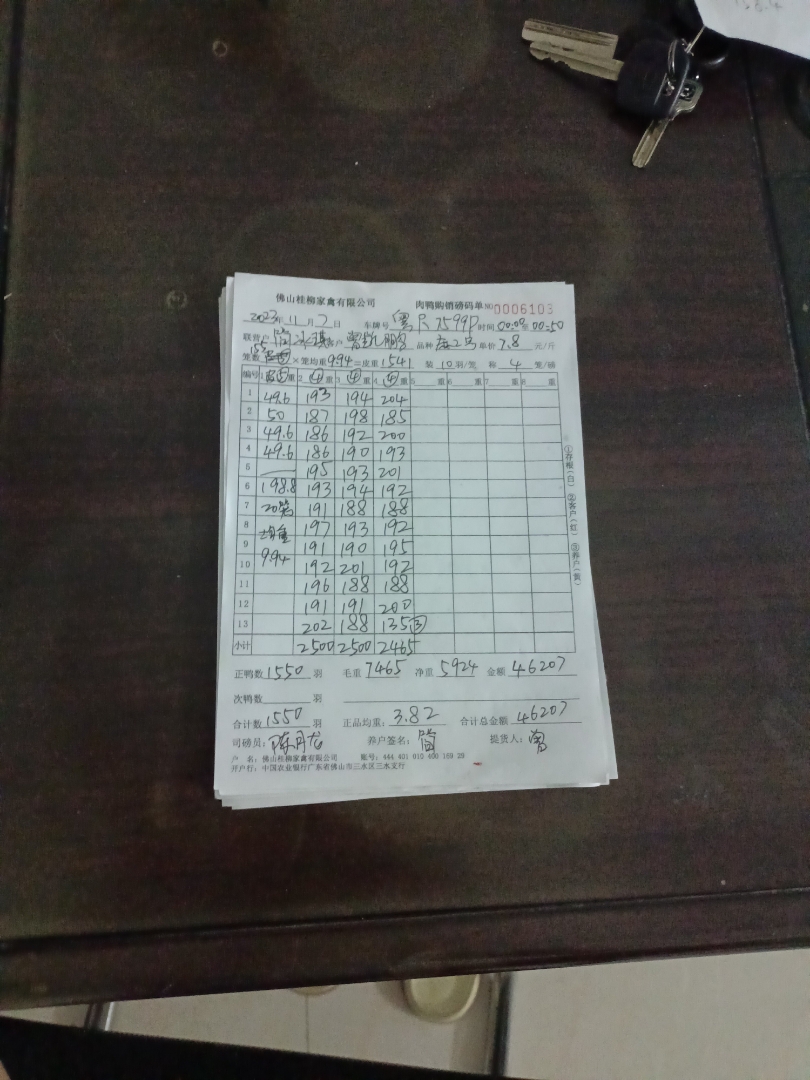 佛山桂柳家禽有限公司 肉鸭购销磅码单 №0006103
2023年 11月 7日 车牌号 粤R7599P 时间 00:00至00:50
联营户 客户 曾凯鹏 品种 单价 7.8 元/斤
笼数 155 × 笼均重 9.94 = 皮重 1541 装 10 羽/笼 称 4 笼/磅
编号 1 重 2 ④ 重 3 ④ 重 4 ④ 重 5 重 6 重 7 重 8 重
1 49.6 193 194 204
2 50 187 198 185
3 49.6 186 192 200
4 49.6 186 190 193
5 195 193 201
6 198.8 193 194 192
7 20笼 191 188 188
8 均重 197 193 192
9 9.94 191 190 195
10 192 201 192
11 196 188 188
12 191 191 200
13 202 188 135③
小计 2500 2500 2465
①存根(白) ②客户(红) ③养户(黄)
正鸭数 1550 羽 毛重 7465 净重 5924 金额 46207
次鸭数 羽
合计数 1550 羽 正品均重: 3.82 合计总金额 46207
司磅员: 陈月龙 养户签名: 提货人: 曾
户 名: 佛山桂柳家禽有限公司 账号: 444 401 010 400 169 29
开户行: 中国农业银行广东省佛山市三水区三水支行